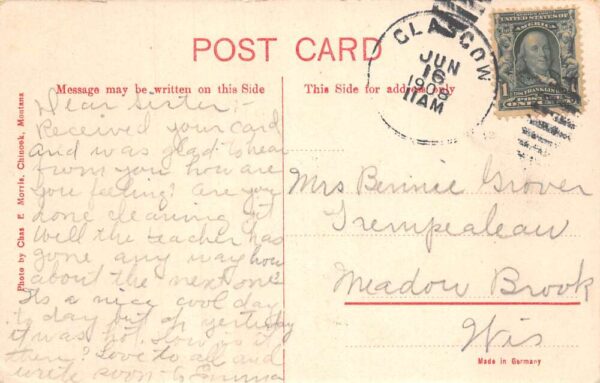 POST CARD
Message may be written on this Side
This Side for address only
GLASGOW
JUN
16
11AM
UNITED STATES OF
FRANKLIN
1
POSTAGE
ONE CENT
Photo by Chas E. Morris, Chinook, Montana
Dear Sister:-
Received your card
and was glad to hear
from you how are
you feeling? Are you
done cleaning yet
Well the teacher has
gone any way how
about the next one?
Its a nice cool day
to day but oh yesterday
it was hot. How is it
there? Love to all and
write soon to Emma
Mrs Bennie Grover
Trempealeau
Meadow Brook
Wis
Made in Germany